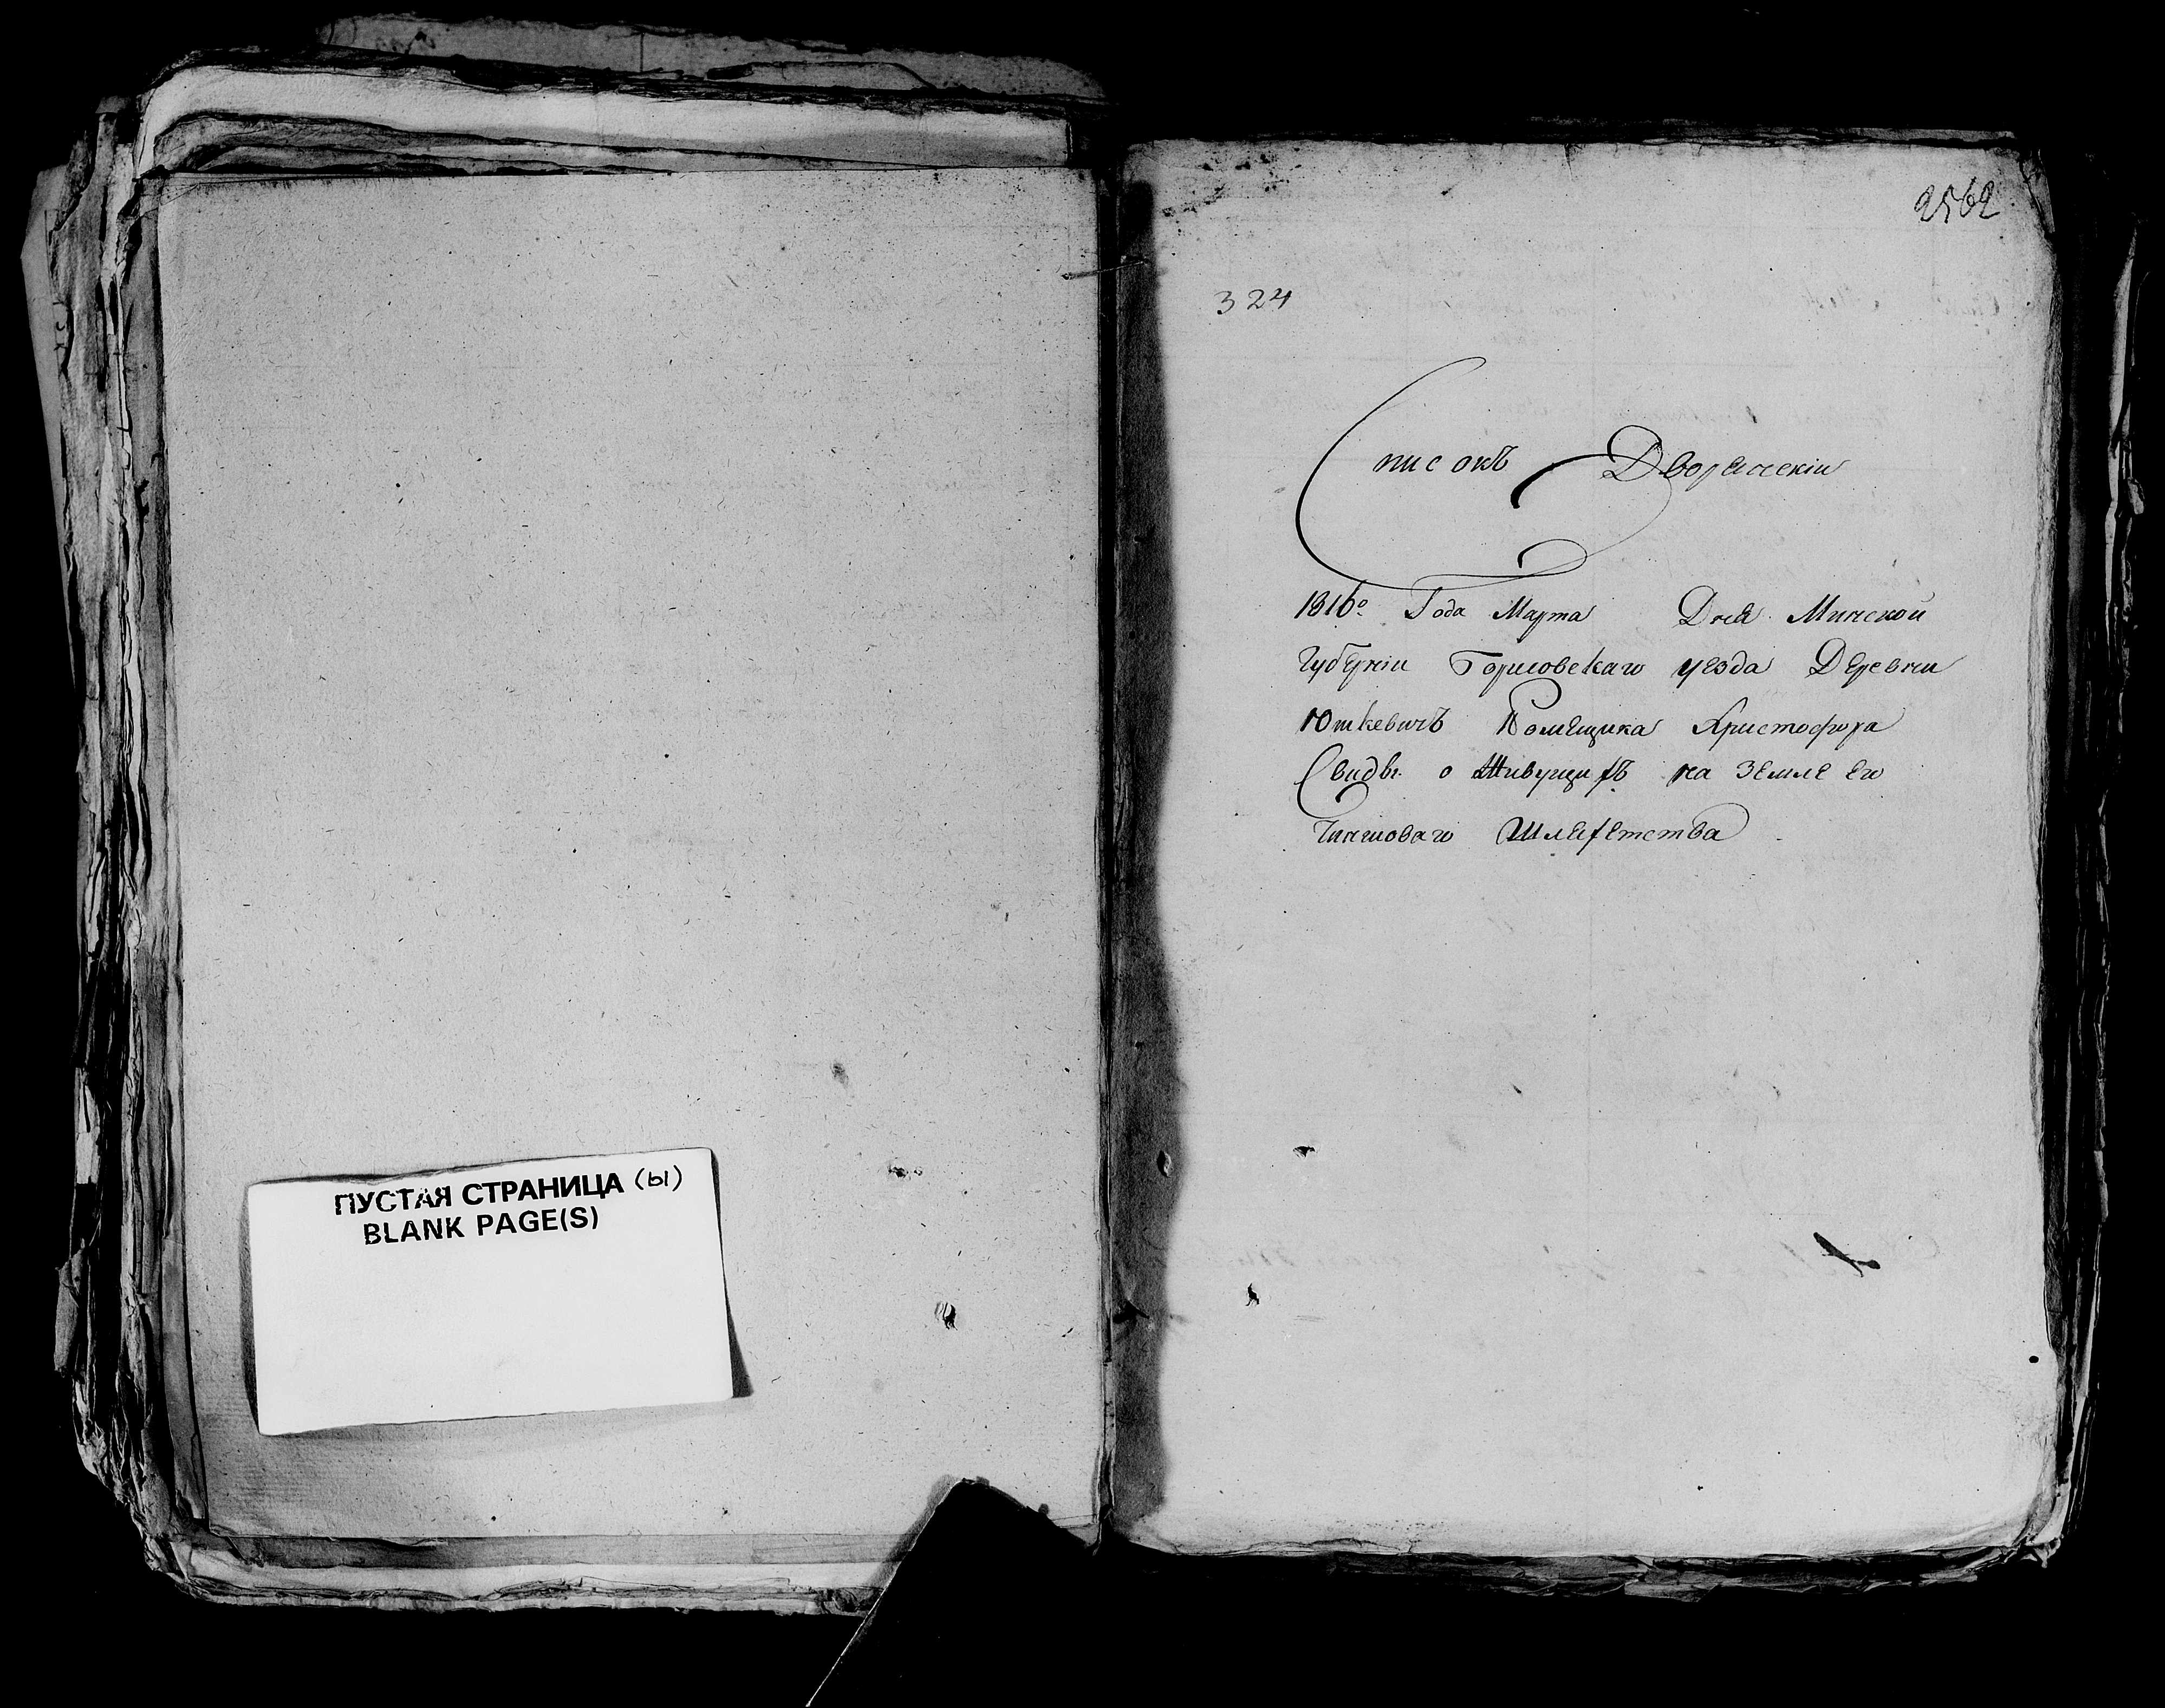 ПУСТАЯ СТРАНИЦА (Ы)
BLANK PAGE(S)
2562
324
Списокъ Дворянскiи
1816º Года Марта Дня Минской
Губернiи Борисовскаго уезда Деревни
Юткевичъ Помещика Христофора
Свиды о Живущихъ на Земле Его
Чиншоваго Шляхетства